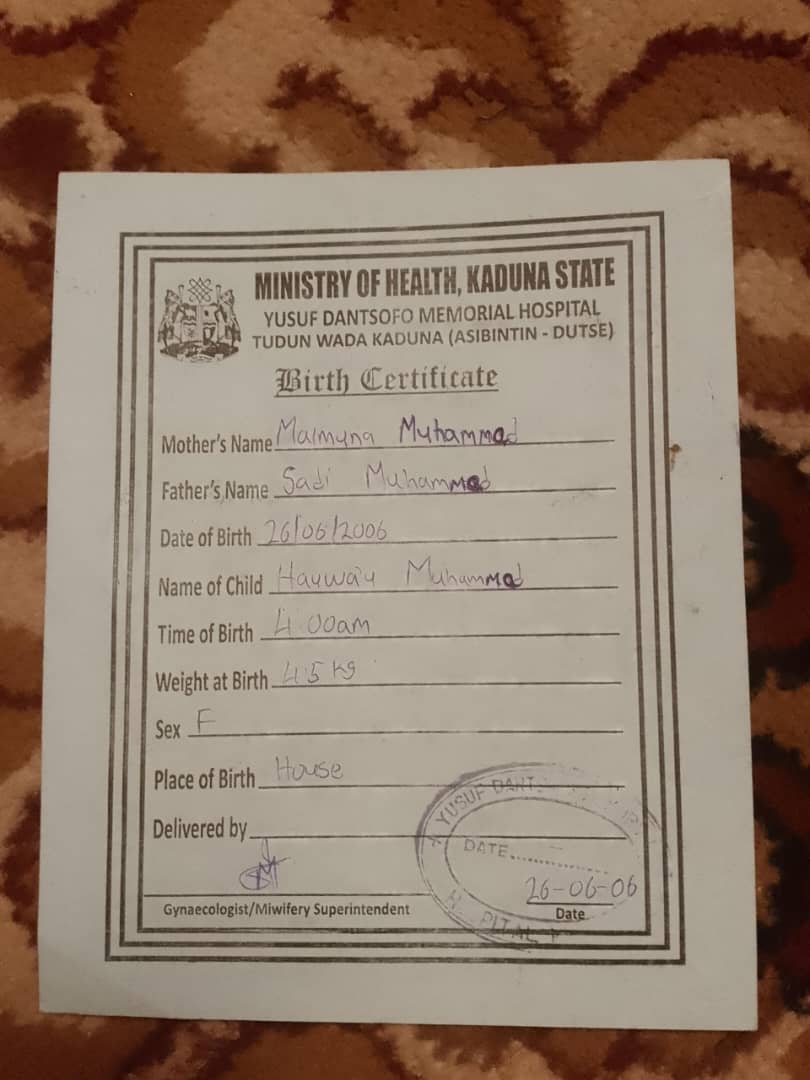 MINISTRY OF HEALTH, KADUNA STATE
YUSUF DANTSOFO MEMORIAL HOSPITAL
TUDUN WADA KADUNA (ASIBINTIN - DUTSE)
Birth Certificate
Mother's Name Maimuna Muhammad
Father's Name Sadi Muhammad
Date of Birth 26/06/2006
Name of Child Hauwa'u Muhammad
Time of Birth 4:00am
Weight at Birth 4.5 kg
Sex F
Place of Birth House
Delivered by
YUSUF DANT
DATE
26-06-06
Gynaecologist/Miwifery Superintendent
Date
H PITAL